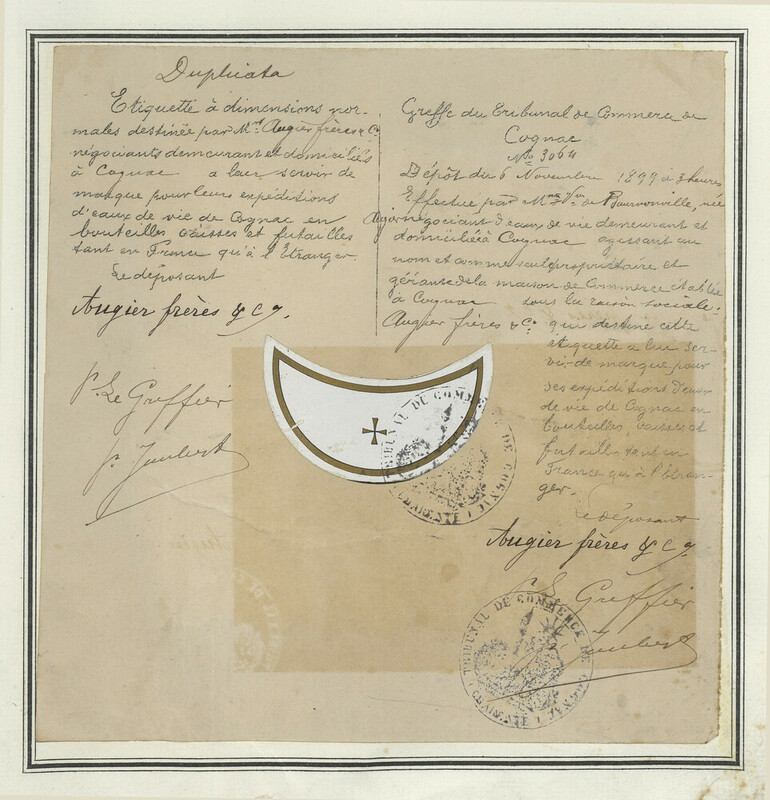 Duplicata
Etiquette à dimensions nor-
males destinée par Mrs Augier frères & Co
négociants demeurant et domiciliés
à Cognac à leur servir de
marque pour leurs expéditions
d'eaux de vie de Cognac en
bouteilles caisses et futailles
tant en France qu'à l'Etranger.
Le déposant
Augier frères & Cy.
Pr Le Greffier
Greffe du Tribunal de Commerce de
Cognac
No 3064
Dépôt du 6 Novembre 1899 à 3 heures
Effectué par Mme Vve de Bournonville, née
Augier négociant d'eaux de vie demeurant et
domiciliée à Cognac agissant au
nom et comme seule propriétaire et
gérante de la maison de Commerce établie
à Cognac sous la raison sociale:
Augier frères & Co qui destine cette
étiquette à leur ser-
vir de marque pour
ses expéditions d'eaux
de vie de Cognac en
bouteilles caisses et
futailles tant en
France qu'à l'Etran-
ger.
Le déposant
Augier frères & Cy
Pr Le Greffier
TRIBUNAL DE COMMERCE DE COGNAC
CHARENTE
TRIBUNAL DE COMMERCE DE COGNAC
CHARENTE